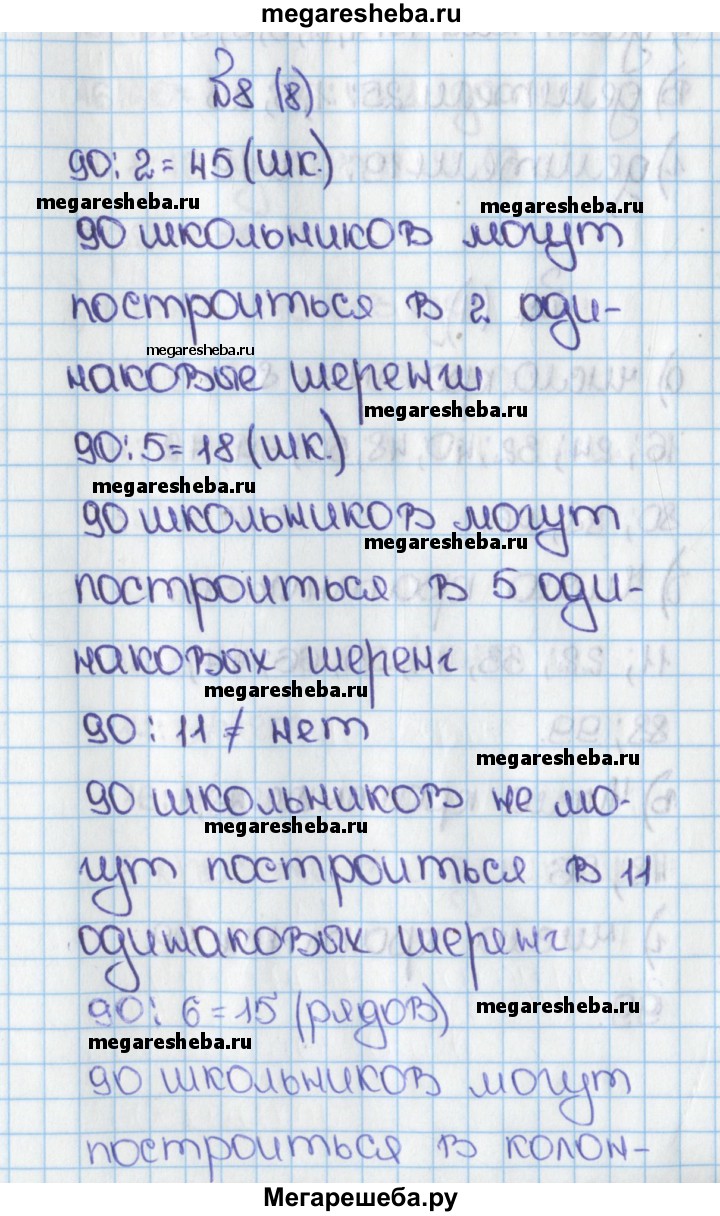 megaresheba.ru
№8 (8)
90:2=45(шк.)
megaresheba.ru
megaresheba.ru
90 школьников могут
построиться в 2 оди-
megaresheba.ru
наковые шеренги
megaresheba.ru
90:5=18(шк.)
megaresheba.ru
90 школьников могут
megaresheba.ru
построиться в 5 оди-
наковых шеренг
megaresheba.ru
90:11≠ нет
megaresheba.ru
90 школьников не мо-
megaresheba.ru
гут построиться в 11
одинаковых шеренг
90:6=15(рядов)
megaresheba.ru
megaresheba.ru
90 школьников могут
построиться в колон-
Мегарешеба.ру